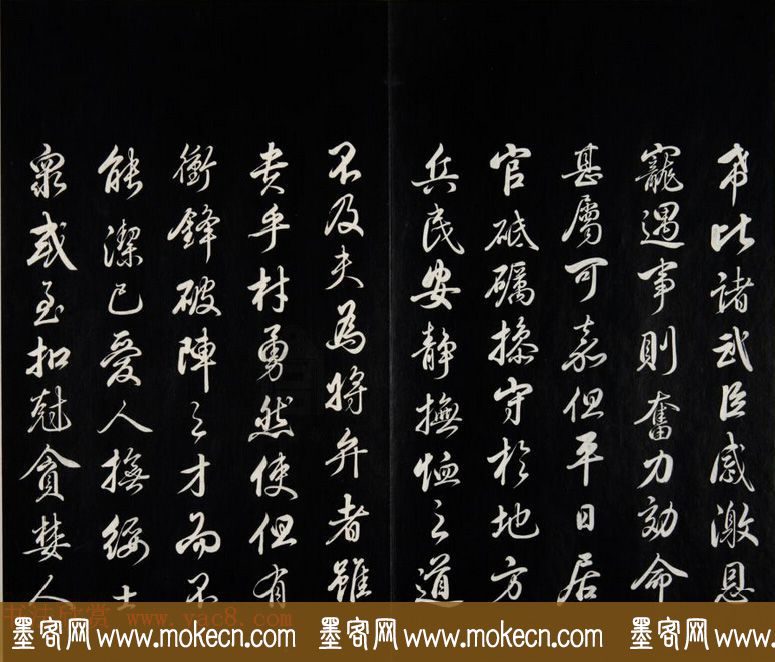 求比諸武臣感激恩
寵遇事則奮力效命
甚屬可嘉但平日居
官砥礪操守於地方
兵民安靜撫恤之道
不及夫為將弁者雖
貴乎材勇然使但有
衝鋒破陣之才而不
能潔己愛人撫綏士
衆或至扣尅貪婪人
书法欣赏 www.yac8.com
墨客网www.mokecn.com 墨客网www.mokecn.com 墨客网